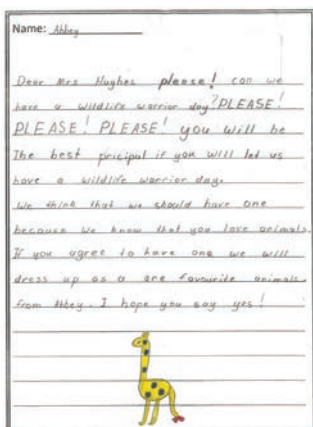 Name: Abbey
Dear Mrs Hughes please! can we
have a wildlife warrior day? PLEASE!
PLEASE! PLEASE! you will be
The best pricipal if you will let us
have a wildlife warrior day.
We think that we should have one
because we know that you love animals.
If you agree to have one we will
dress up as a are favourite animals.
from Abbey. I hope you say yes!